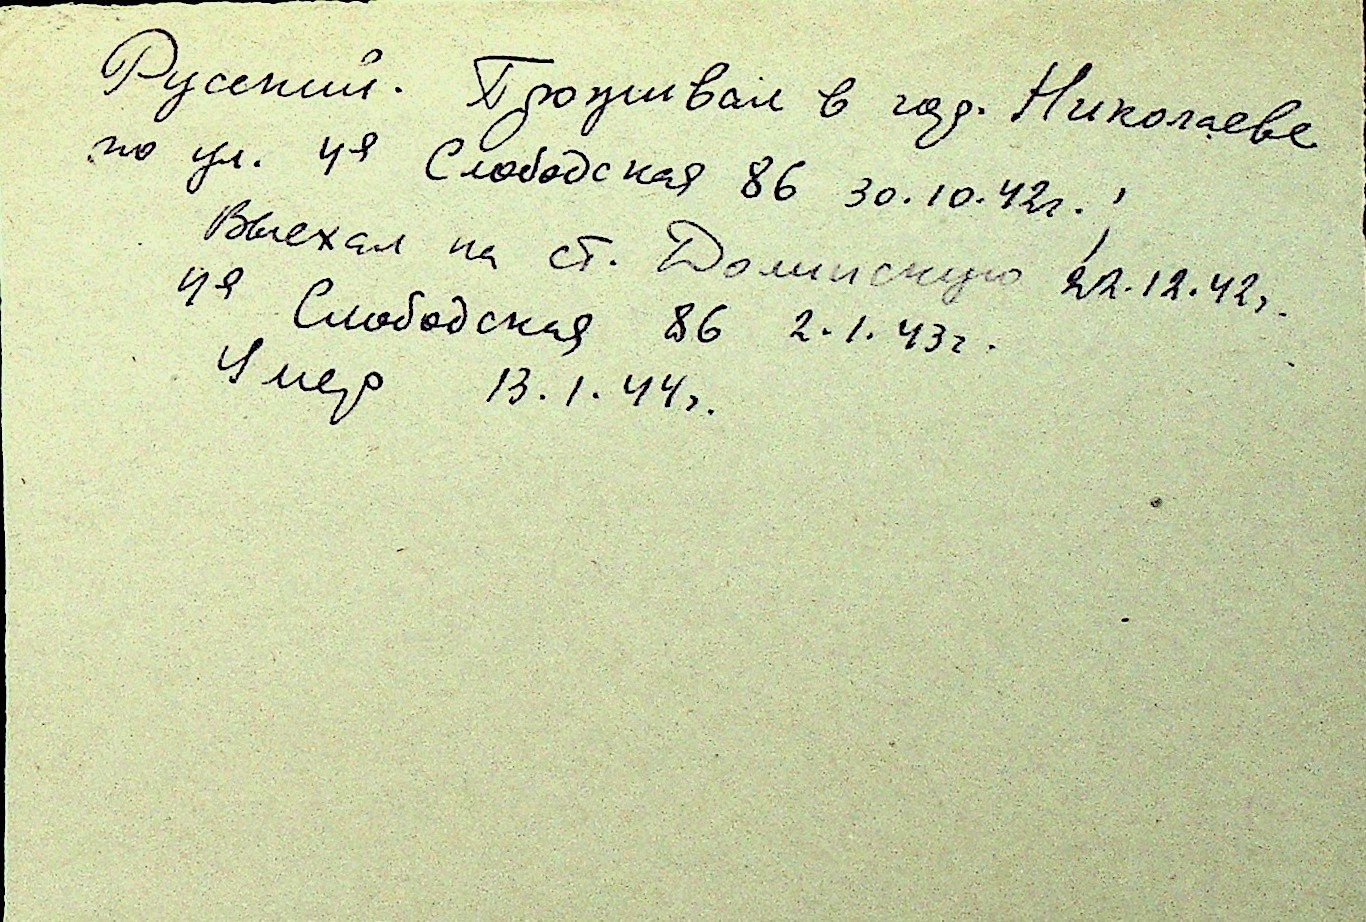 Русский. Проживал в гор. Николаеве
по ул. 4я Слободская 86 30.10.42г.
Выехал на ст. Долинскую 22.12.42г.
4я Слободская 86 2.1.43г.
Умер 13.1.44г.